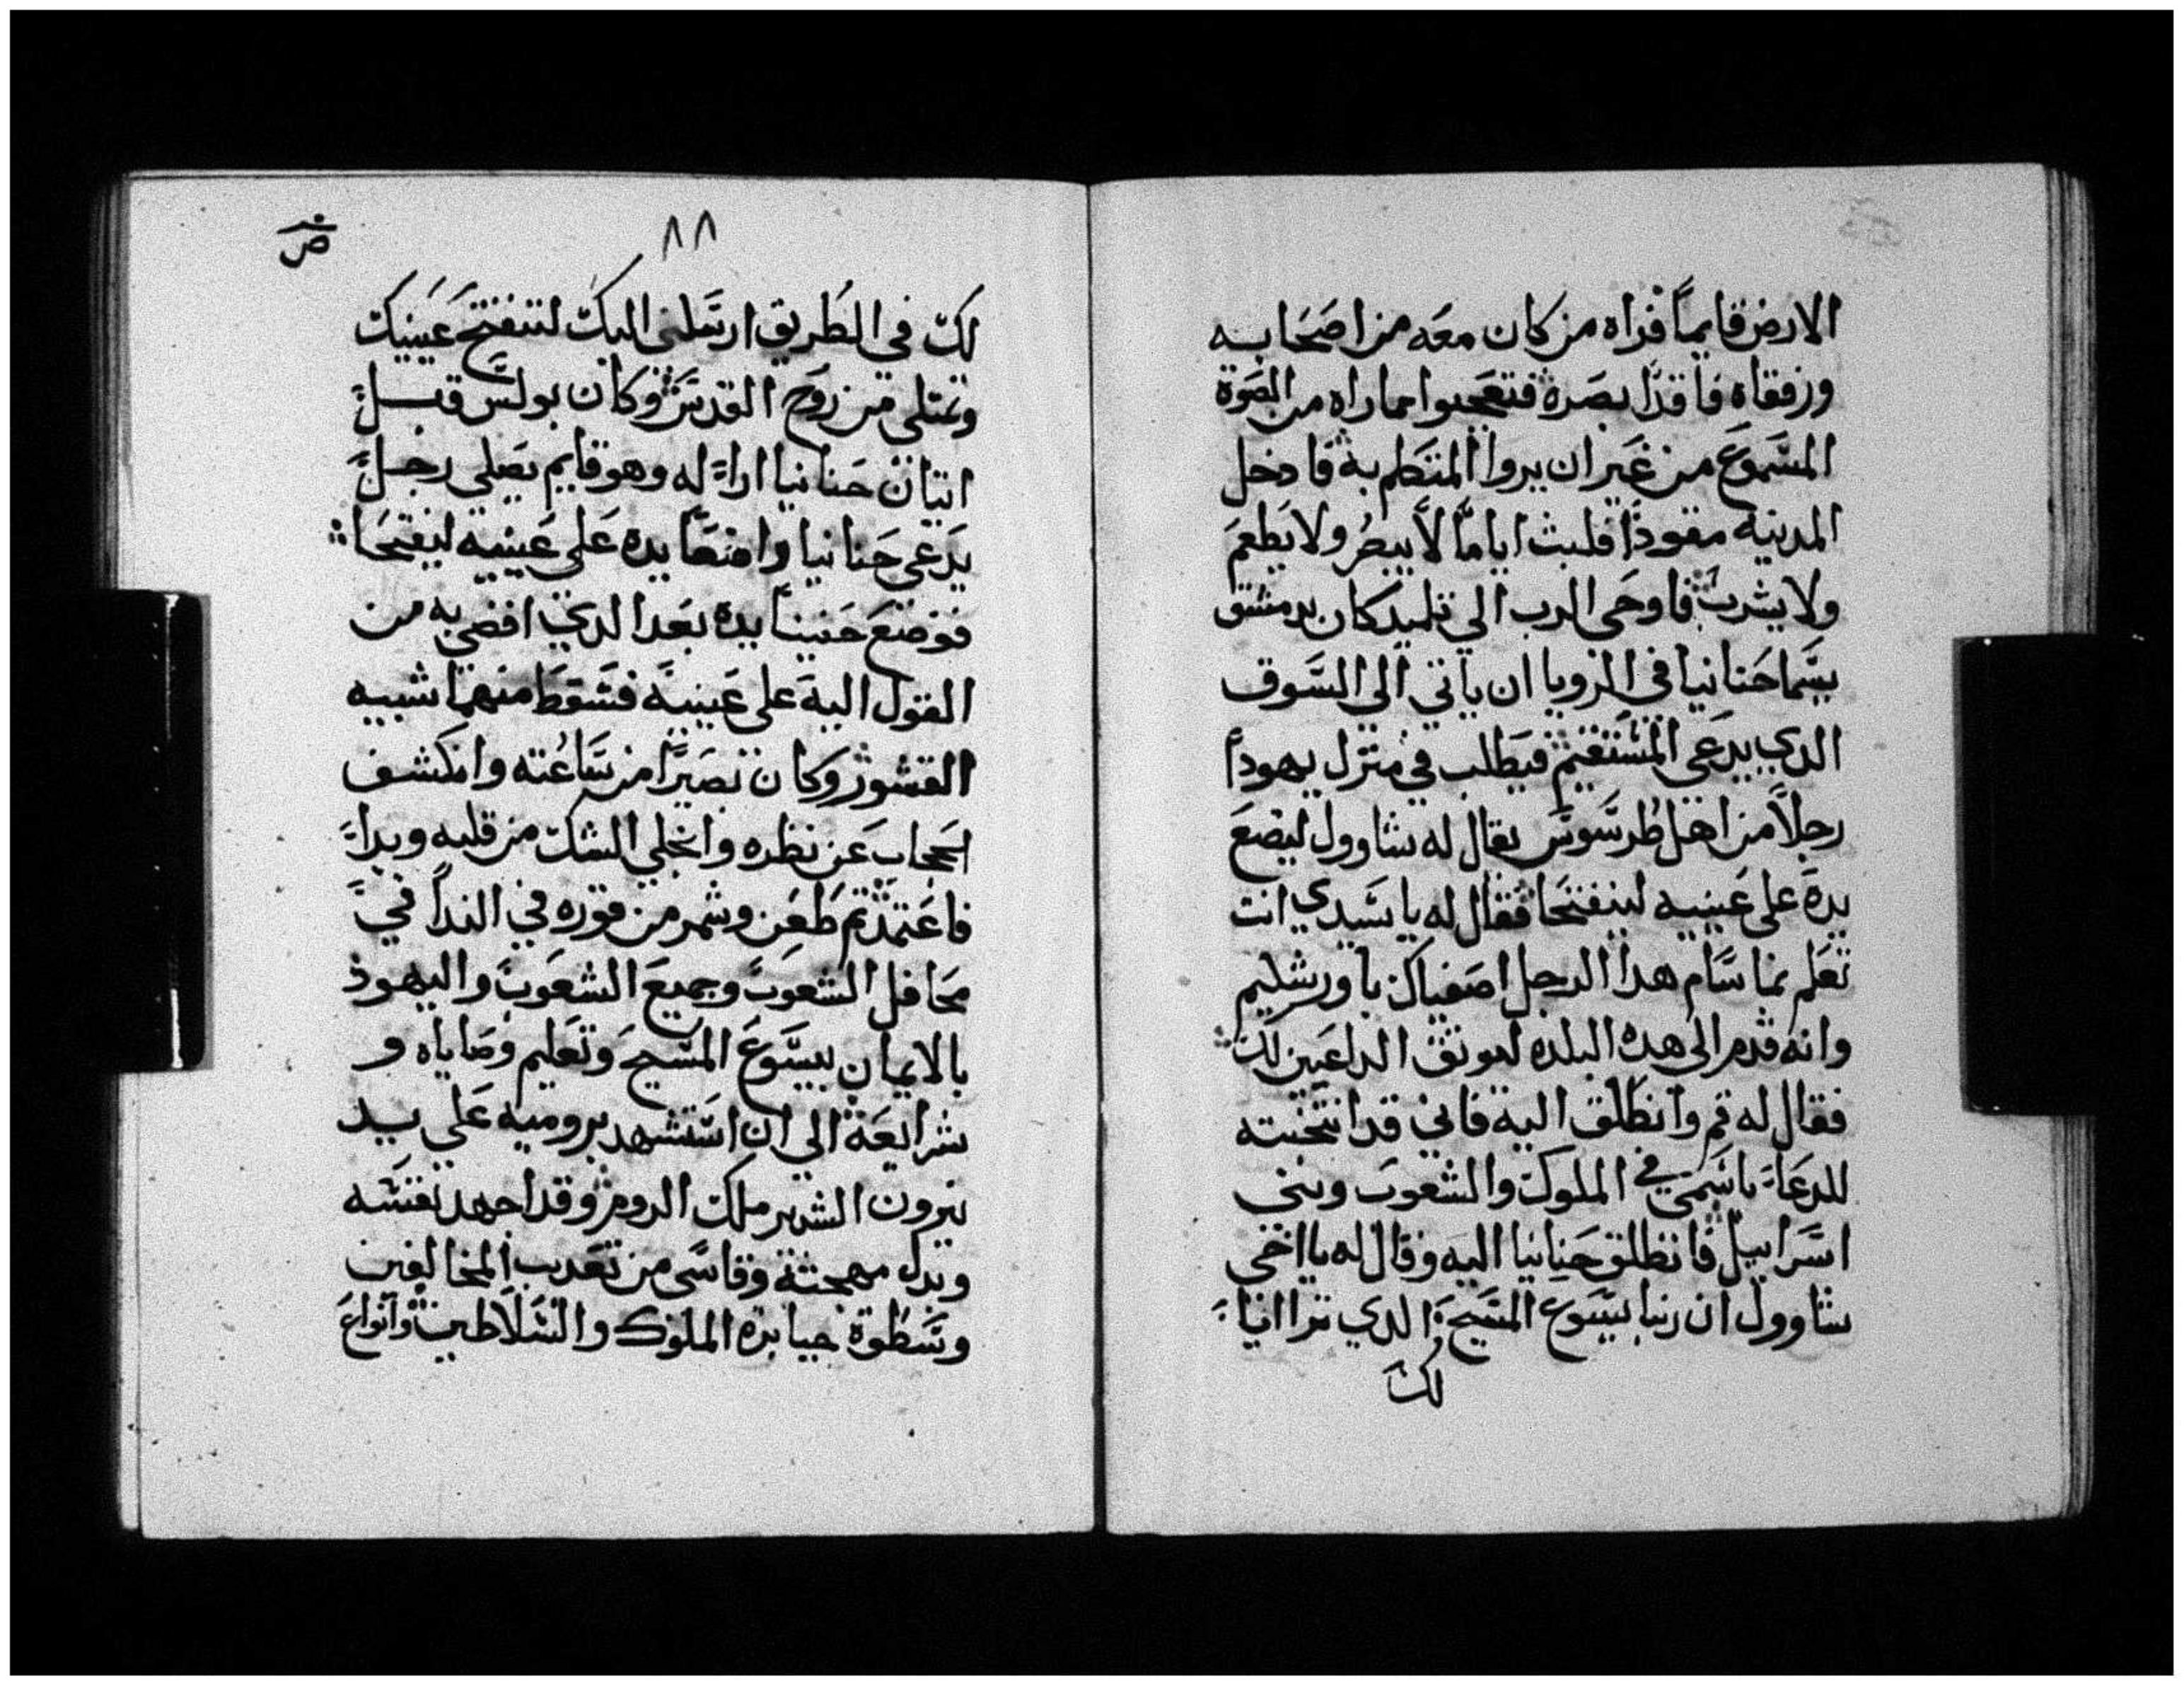 الارض قايماً فراه من كان معه من اصحابه
ورفقاه فاقداً بصره فتعجبوا مما راه من الصوة
المسموع من غير ان يروا المتكلم به فادخل
المدينه مقوداً فلبث اياماً لا يبصر ولا يطعم
ولا يشرب فاوحي الرب الي تلميد كان بدمشق
يسما حنانيا في الرويا ان ياتي الي السوق
الدي يدعي المستقيم فيطلب في منزل يهودا
رجلاً من اهل طرسوس يقال له شاوول ليضع
يده علي عينيه لينفتحا فقال له يا سيدي انت
تعلم بما سام هدا الرجل اصفياك باورشليم
وانه قدم الي هده البلده ليوثق الداعين لك
فقال له قم وانطلق اليه فاني قد انتخبته
للدعاء باسمي في الملوك والشعوب وبني
اسراييل فانطلق حنانيا اليه وقال له يا اخي
شاوول ان ربنا يسوع المسيح الدي ترا ايا
لك
٨٨
لك في الطريق ارسلني اليك لتنفتح عينيك
وتمتلي من روح القدس وكان بولس قبل
اتيان حنانيا اراه له وهو قايم يصلي رجل
يدعي حنانيا واضعاً يده علي عينيه ليفتحا
فوضع حنينا يده بعد الدي افضي به من
القول اليه علي عينيه فسقط منهما شبيه
القشور وكان بصيراً من ساعته وانكشف
الحجاب عن نظره وانجلي الشك من قلبه وبداء
فاعتمد تم طعن وشمر من فوره في الندا في
محافل الشعوب وجميع الشعوب واليهود
بالايمان بيسوع المسيح وتعليم وصاياه و
شرايعه الي ان استشهد بروميه علي يد
نيرون الشرير ملك الروم وقد اجهد نفسه
وبدل مهجته وقاسي من تعديب المخالفين
وسطوة جبابرة الملوك والسلاطين وانواع